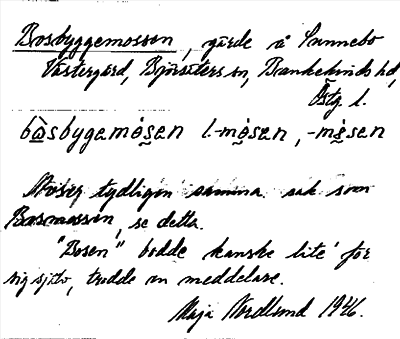 Bosbyggemossen, gärde å Sunnebo
Västergård, Björsäters sn, Bankekinds hd,
Östg. l.
bòsbygemósen l. -mósen, -mósen
tydligen samma sak som
Bosmossen, se detta.
"Bosen" bodde kanske lite' för
sig själv, trodde en meddelare.
Maja Nordlund 1946.